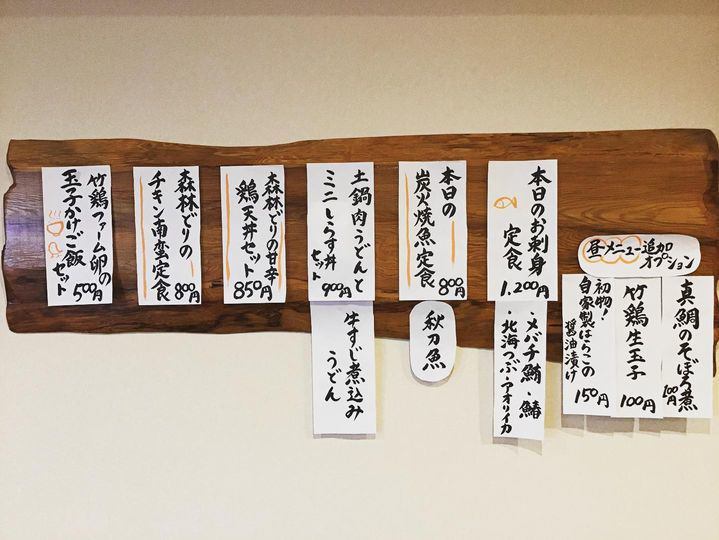 昼メニュー追加
オプション
真鯛のそぼろ煮
100円
竹鶏生玉子
100円
初物!
自家製はらこの
醤油漬け
150円
本日のお刺身
定食
1,200円
・メバチ鮪・鰆
・北海つぶ・アオリイカ
本日の
炭火焼魚定食
800円
秋刀魚
土鍋肉うどんと
ミニしらす丼
セット
900円
牛すじ煮込み
うどん
森林どりの甘辛
鶏天丼セット
850円
森林どりの
チキン南蛮定食
800円
竹鶏ファーム卵の
玉子かけご飯
セット
500円